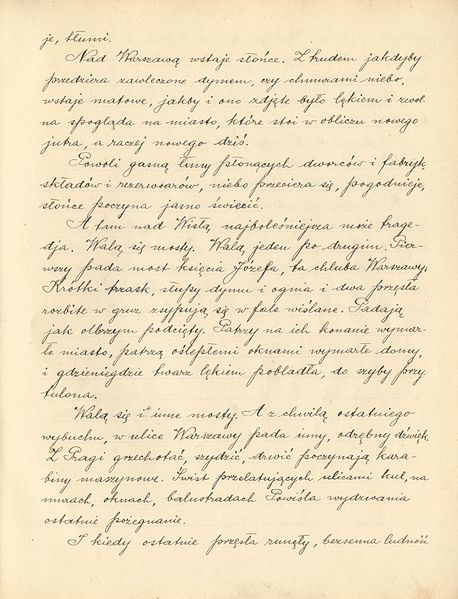 je, tłumi.
Nad Warszawą wstaje słońce. Z trudem jakdyby
przedziera zawleczone dymem, czy chmurami niebo,
wstaje matowe, jakby i ono zdjęte było lękiem i zwol-
na spogląda na miasto, które stoi w obliczu nowego
jutra, a raczej nowego dziś.
Powoli gasną łuny płonących dworców i fabryk,
składów i rezerwoarów, niebo przeciera się, pogodnieje,
słońce poczyna jasno świecić.
A tam nad Wisłą najboleśniejsza może trage-
dja. Walą się mosty. Walą jeden po drugim. Pier-
wszy pada most księcia Józefa, ta chluba Warszawy.
Krótki trzask, słupy dymu i ognia i dwa przęsła
rozbite w gruz zsypują się w fale wiślane. Padają
jak olbrzym podcięty. Patrzy na ich konanie wymar-
łe miasto, patrzą oślepłemi oknami wymarłe domy,
i gdzieniegdzie twarz lękiem pobladła, do szyby przy-
tulona.
Walą się i inne mosty. A z chwilą ostatniego
wybuchu, w ulice Warszawy pada inny, odrębny dźwięk.
Z Pragi grzechotać, szydzić, drwić poczynają kara-
biny maszynowe. Świst przelatujących ulicami kul, na
murach, oknach, balustradach Powiśla wydzwania
ostatnie pożegnanie.
I kiedy ostatnie przęsła runęły, bezsenna ludność